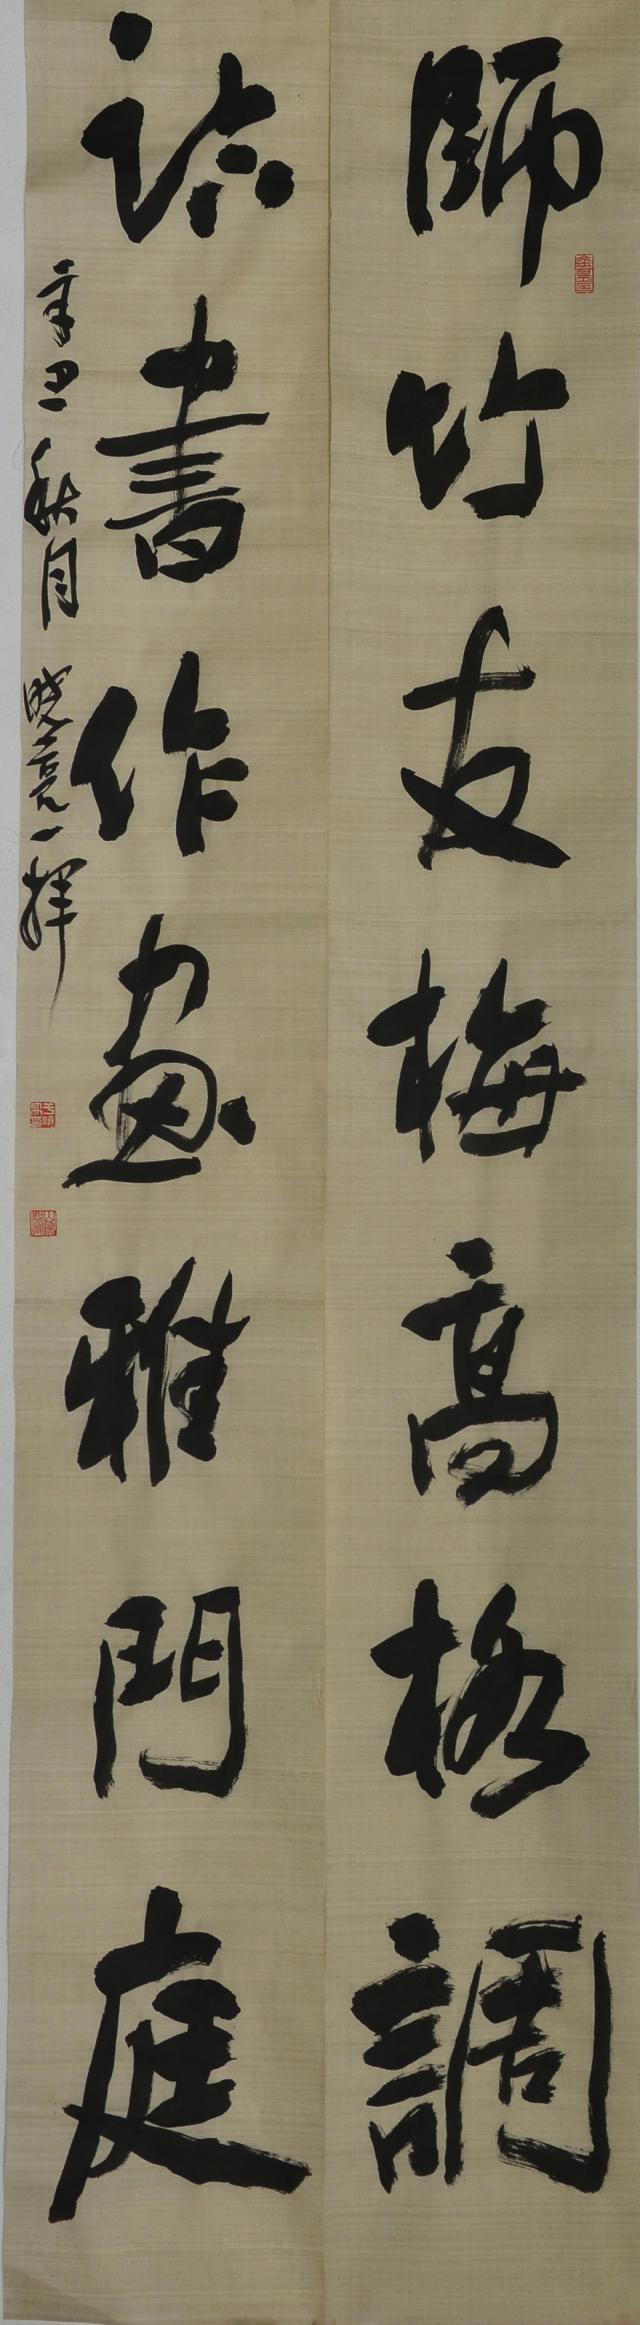 師竹友梅高格調
讀書作畫雅門庭
辛丑秋月曉亮一揮